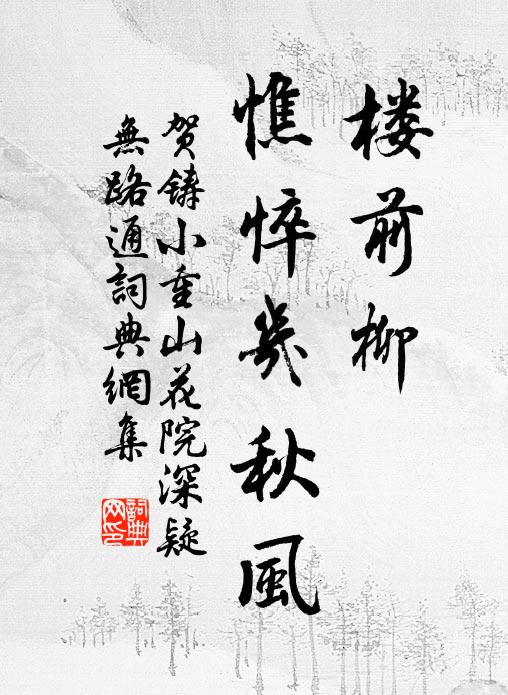 楼前柳
憔悴幾秋風
贺鑄小重山花院深疑
無路通詞典網集
詞典网印